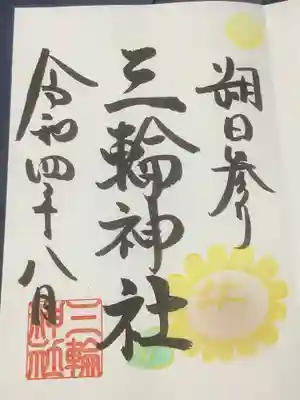 朔日参り
三輪神社
令和四年八月
三輪
神社